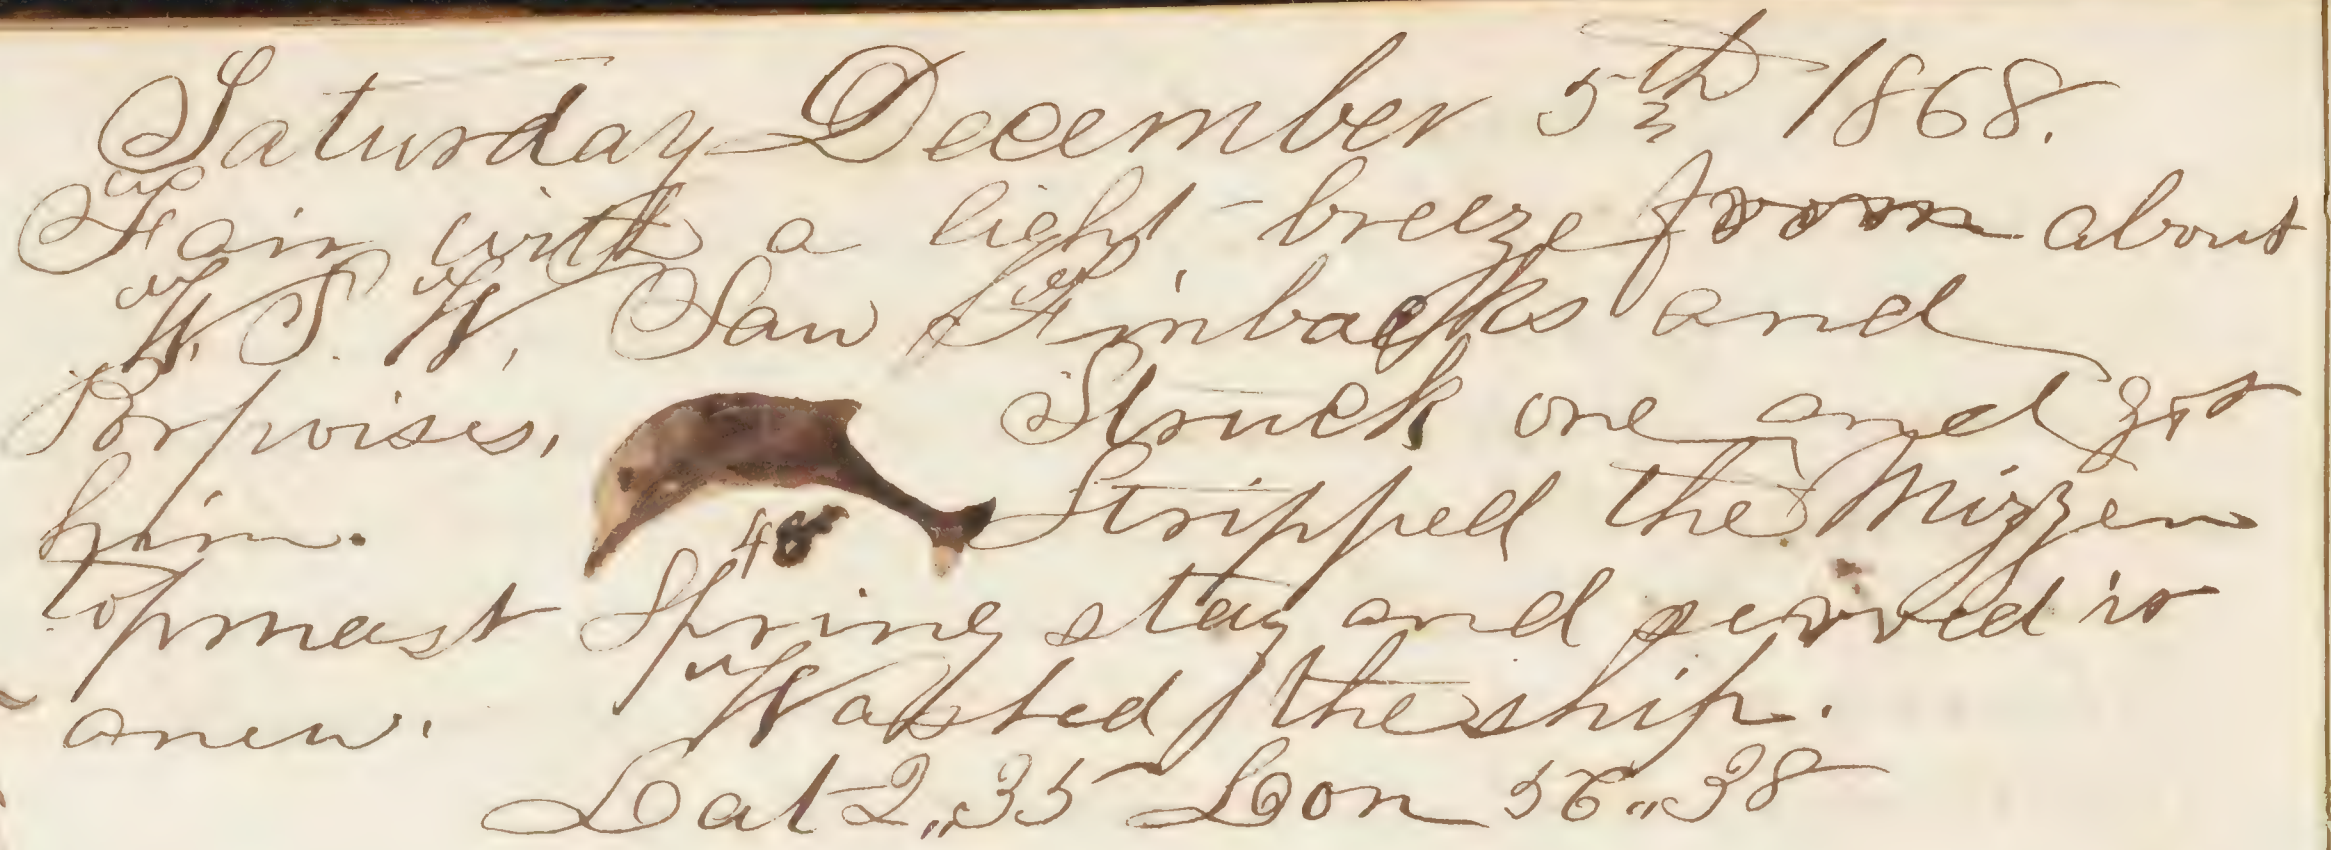 Saturday December 5th 1868.
Fair with a light breeze from about
W. S. W. Saw Finbacks and
Porpoises, Struck one and got
him. 48 Stripped the Mizzen
topmast Spring stay and served it
anew. Washed the ship.
Lat 2,,35 Lon 56,,38